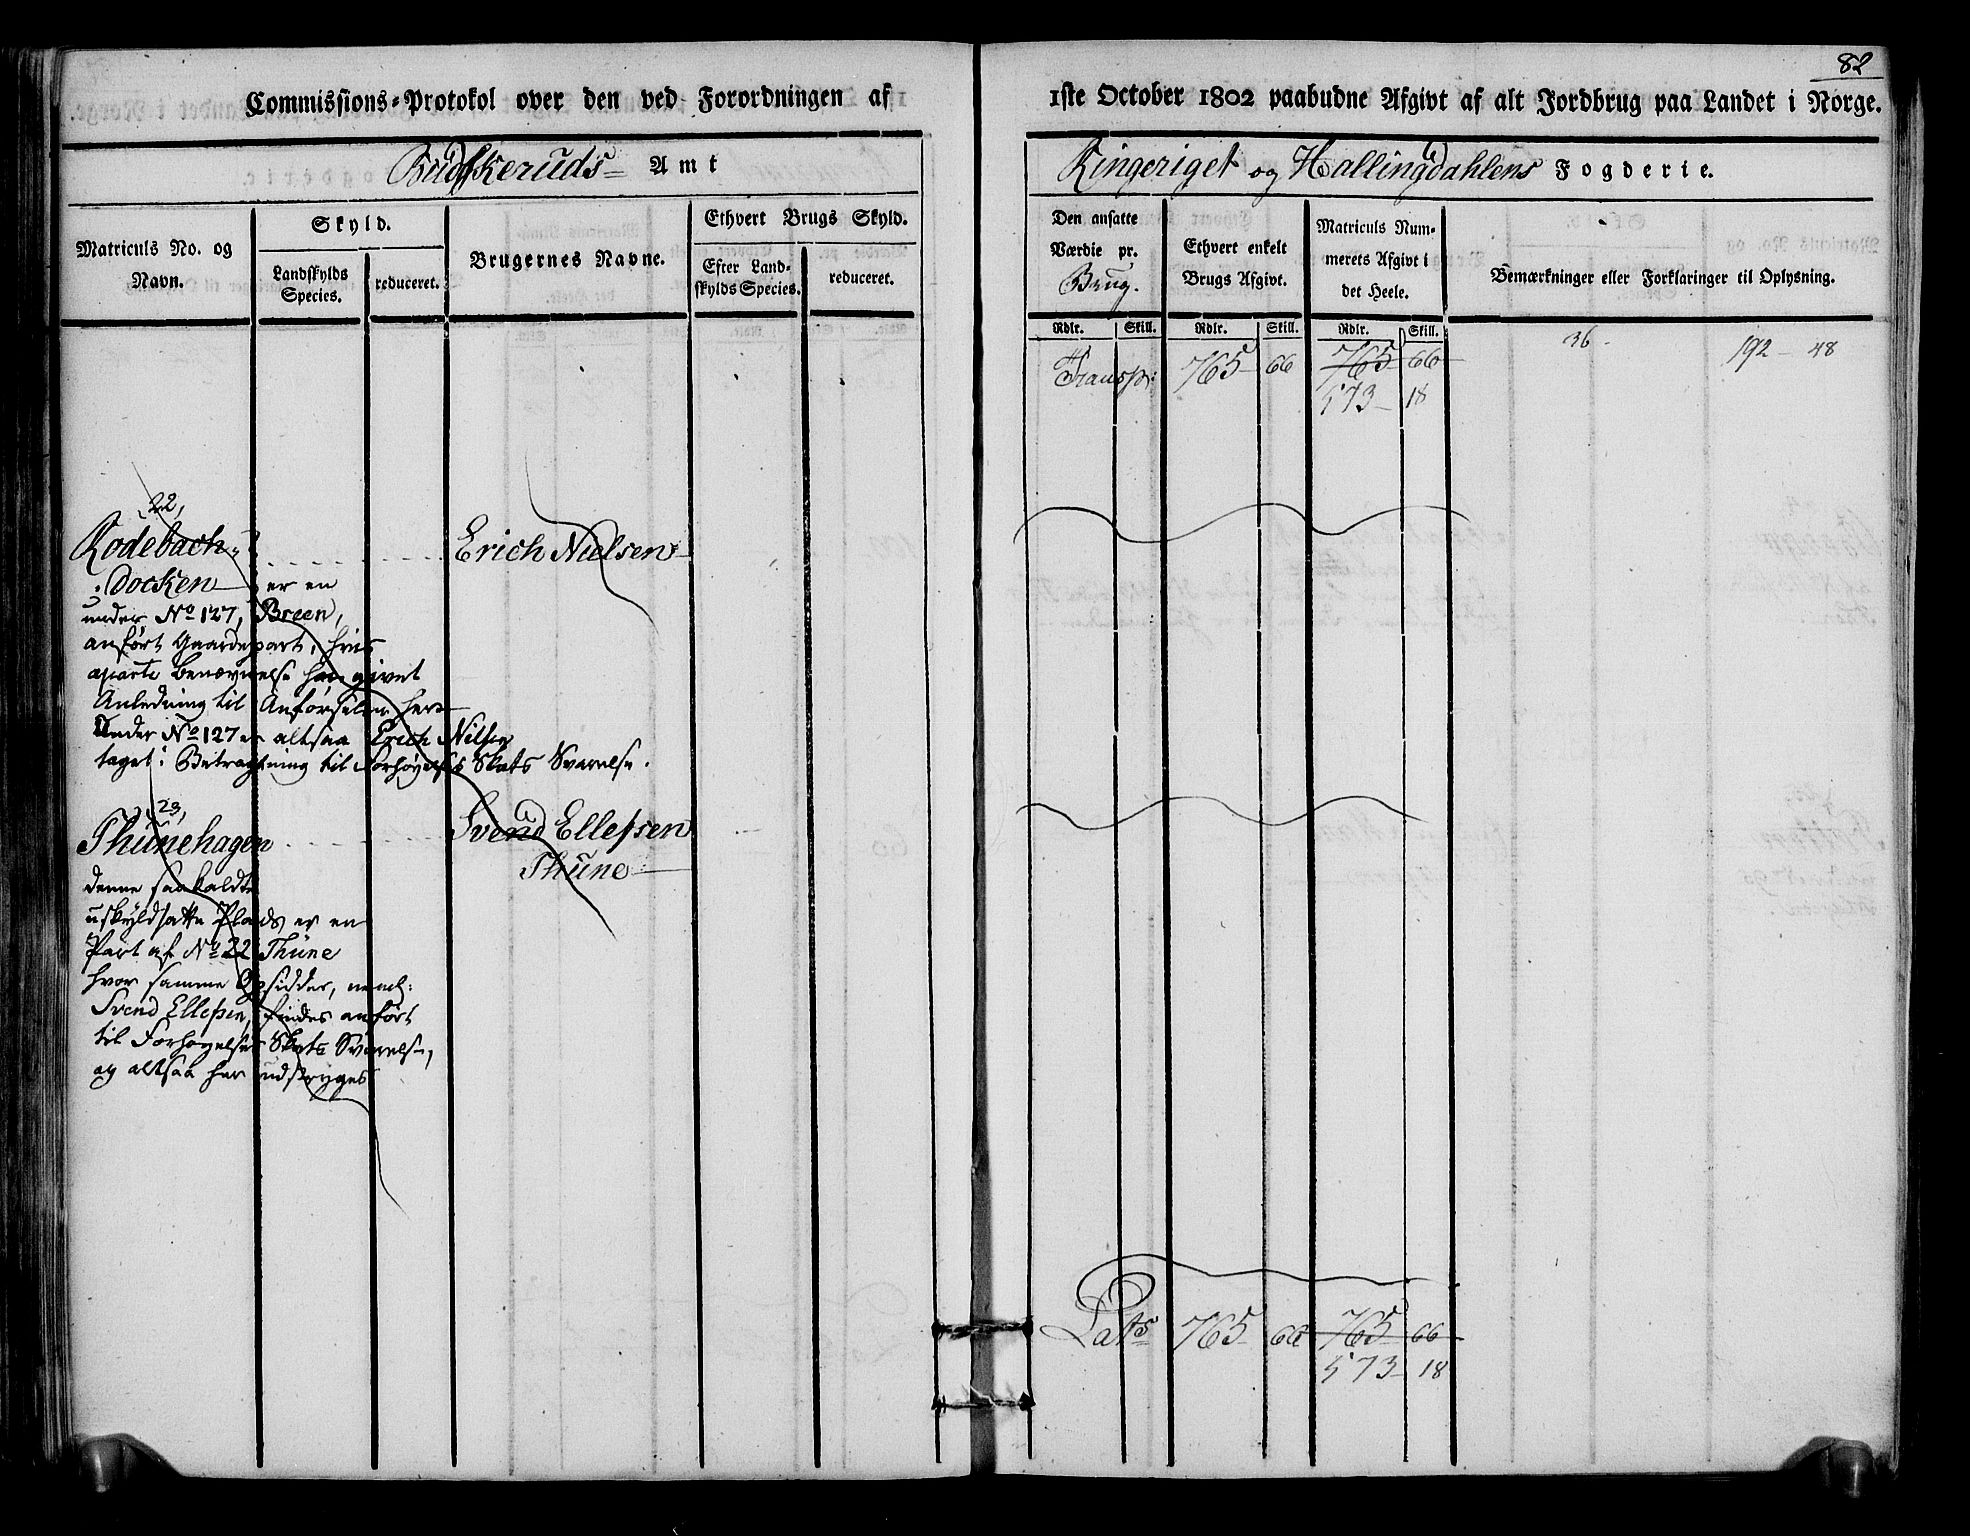 82
Commissions-Protokol over den ved Forordningen af 1ste October 1802 paabudne Afgivt af alt Jordbrug paa Landet i Norge.
Budskeruds Amt
Ringeriget og Hallingdahlens Fogderie.
Matriculs No. og Navn.
Skyld.
Landskylds Species.
reduceret.
Brugernes Navne.
Ethvert Brugs Skyld.
Efter Landskylds Species.
reduceret.
Den ansatte Værdie pr. Brug.
Ethvert enkelt Brugs Afgivt.
Matriculs Nummerets Afgivt i det Heele.
Bemærkninger eller Forklaringer til Oplysning.
Rdlr. Skill. Rdlr. Skill. Rdlr. Skill.
Transp: 765 66 765 66 36 - 192 - 48
573 - 18
22,
Rodebach Erich Nielsen
Docken er en
under No 127, Breen,
anført Gaardepart, hvis
aparte benævnelse har givet
Anledning til Anførselen her
Under No 127 er altsaa Erich Nilsen
taget i Betragtning til Forhøyelses Skats Svarelse.
23,
Thunehagen Svend Ellefsen
Thune
denne saakaldte
uskyldsatte Plads er en
Part af No 22 Thune
hvor samme Opsidder, neml:
Svend Ellefsen, findes anført
til Forhøyelses Skats Svarelse,
og altsaa her udstryges
Lats 765 66 765 66
573 - 18